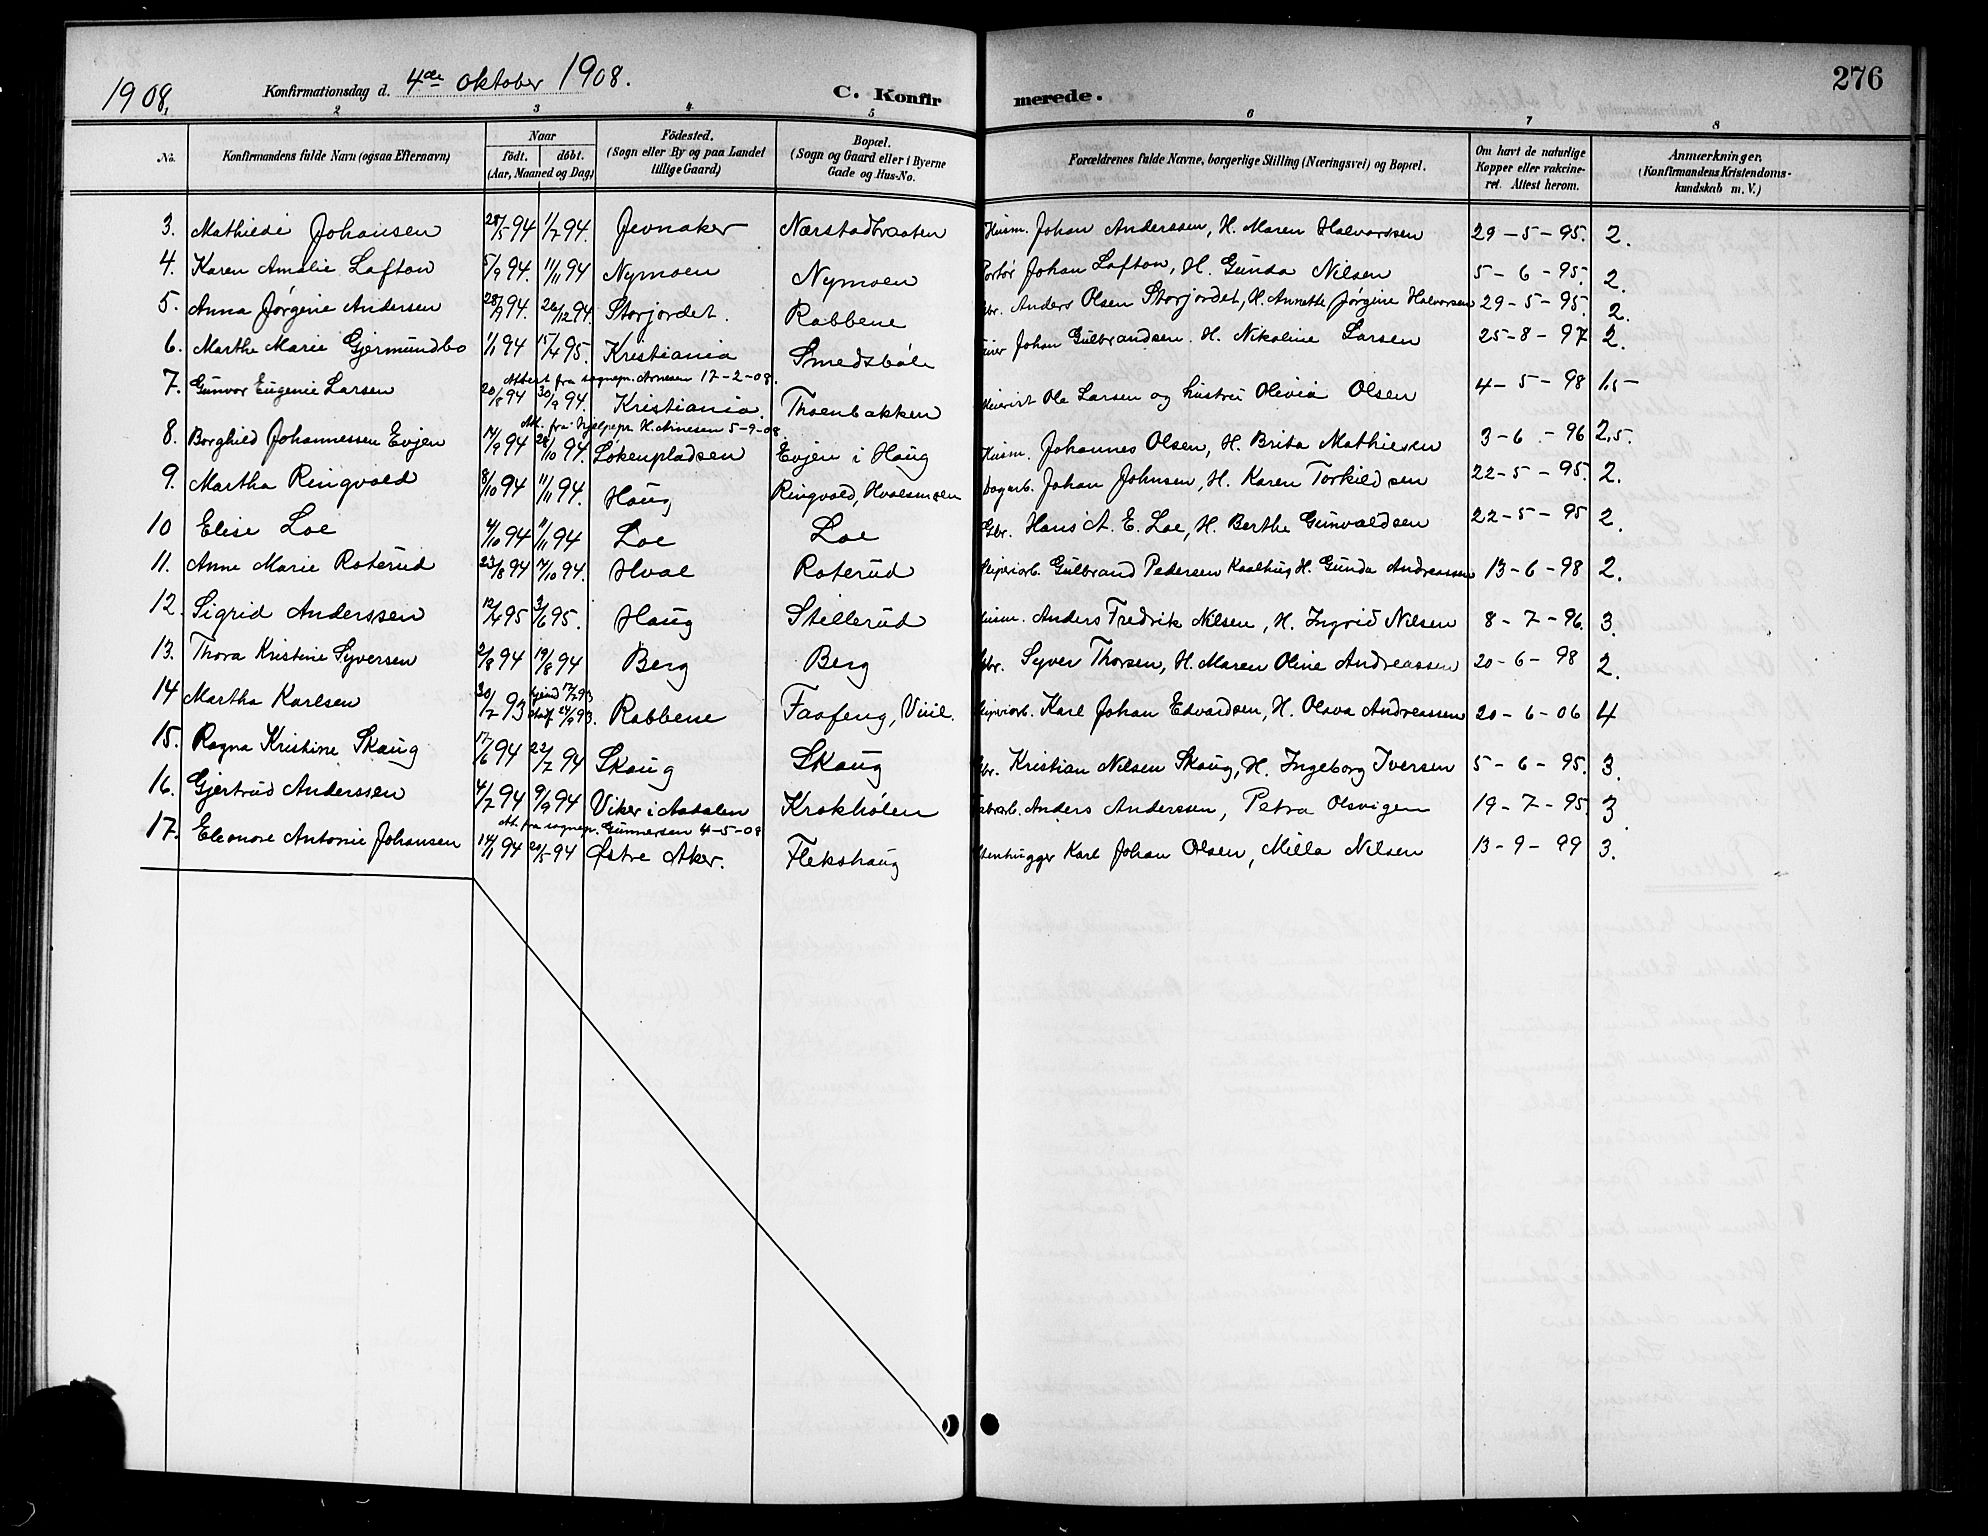 1908, Konfirmationsdag d. 4de oktober 1908. C. Konfirmerede. 276
1 2 3 4 5 6 7 8
No. Konfirmandens fulde Navn (ogsaa Efternavn) Naar født. døbt. (Aar, Maaned og Dag) Födested. (Sogn eller By og paa Landet tillige Gaard) Bopæl. (Sogn og Gaard eller i Byerne Gade og Hus-No. Forældrenes fulde Navne, borgerlige Stilling (Næringsvei) og Bopæl. Om havt de naturlige Kopper eller vakcineret. Attest herom. Anmærkninger, (Konfirmandens Kristendomskundskab m. V.)
3. Mathilde Johansen 28/5 94 1/7 94. Jevnaker Nærstadbraaten Husm. Johan Anderssen, H. Maren Halvorsen 29-5-95. 2.
4. Karen Amalie Lafton 5/9 94. 11/11 94 Nymoen Nymoen Portør Johan Lafton, H. Gunda Nilsen 5-6-95. 2.
5. Anna Jørgine Andersen 28/9 94. 26/12 94. Storjordet. Rabbene Gbr. Anders Olsen Storjordet, H. Annette Jørgine Halvorsen 29-5-95. 2.
6. Marthe Marie Gjermundbo 1/1 94 15/4 95. Kristiania Smedsbøle Johan Gulbrandsen. H. Nikoline Larsen 25-8-97 2.
Attest fra sognepr. Arnesen 17-2-08.
7. Gunvor Eugenie Larsen 20/8 94 30/9 94. Kristiania. Thoenbakken Ole Larsen og hustru Olivia Olsen 4-5-98 1,5-
Att. fra hjelpepr. H. Arnesen 5-9-08.
8. Borghild Johannessen Evjen 14/9 94 28/10 94. Løkenpladsen Evjen i Haug Husm. Johannes Olsen, H. Brita Mathiesen 3-6-96 2,5.
9. Martha Ringvold 8/10 94 11/11 94. Haug Ringvold, Hvalsmoen Dagarb. Johan Johnsen, H. Karen Torkildsen 22-5-95. 2.
10 Elise Loe 4/10 94 11/11 94 Loe Loe Gbr. Hans A. E. Loe, H. Berthe Gunvaldsen 22-5-95 2.
11. Anne Marie Roterud 23/8 94 7/10 94. Hval Roterud Gulbrand Pedersen Kaalhus H. Gunda Andreassen 13-6-98 2.
12. Sigrid Anderssen 12/4 95 3/6 95. Haug Stillerud Husm. Anders Fredrik Nilsen, H. Ingrid Nilsen 8-7-96. 3.
13. Thora Kristine Syversen 2/8 94 19/8 94 Berg Berg Gbr. Syver Thorsen, H. Maren Oline Andreassen 20-6-98 2.
14 Martha Karlsen 30/7 93 24/9 93. Rabbene Faafeng, Viul. Karl Johan Edvardsen, H. Olava Andreassen 20-6-06 4
15. Ragna Kristine Skaug 17/6 94 22/7 94 Skaug Skaug Gbr. Kristian Nilsen Skaug, H. Ingeborg Iversen 5-6-95. 3.
16. Gjertrud Anderssen 4/7 94 9/9 94 Viker i Aadalen Krokhølen Anders Anderssen, Petra Olsvigen 19-7-95. 3.
Att. fra sognepr. Gunnersen 4-5-08
17. Eleonore Antonie Johansen 14/1 94 20/5 94 Østre Aker. Flekshaug Stenhugger Karl Johan Olsen, Milla Nilsen 13-9-99 3.